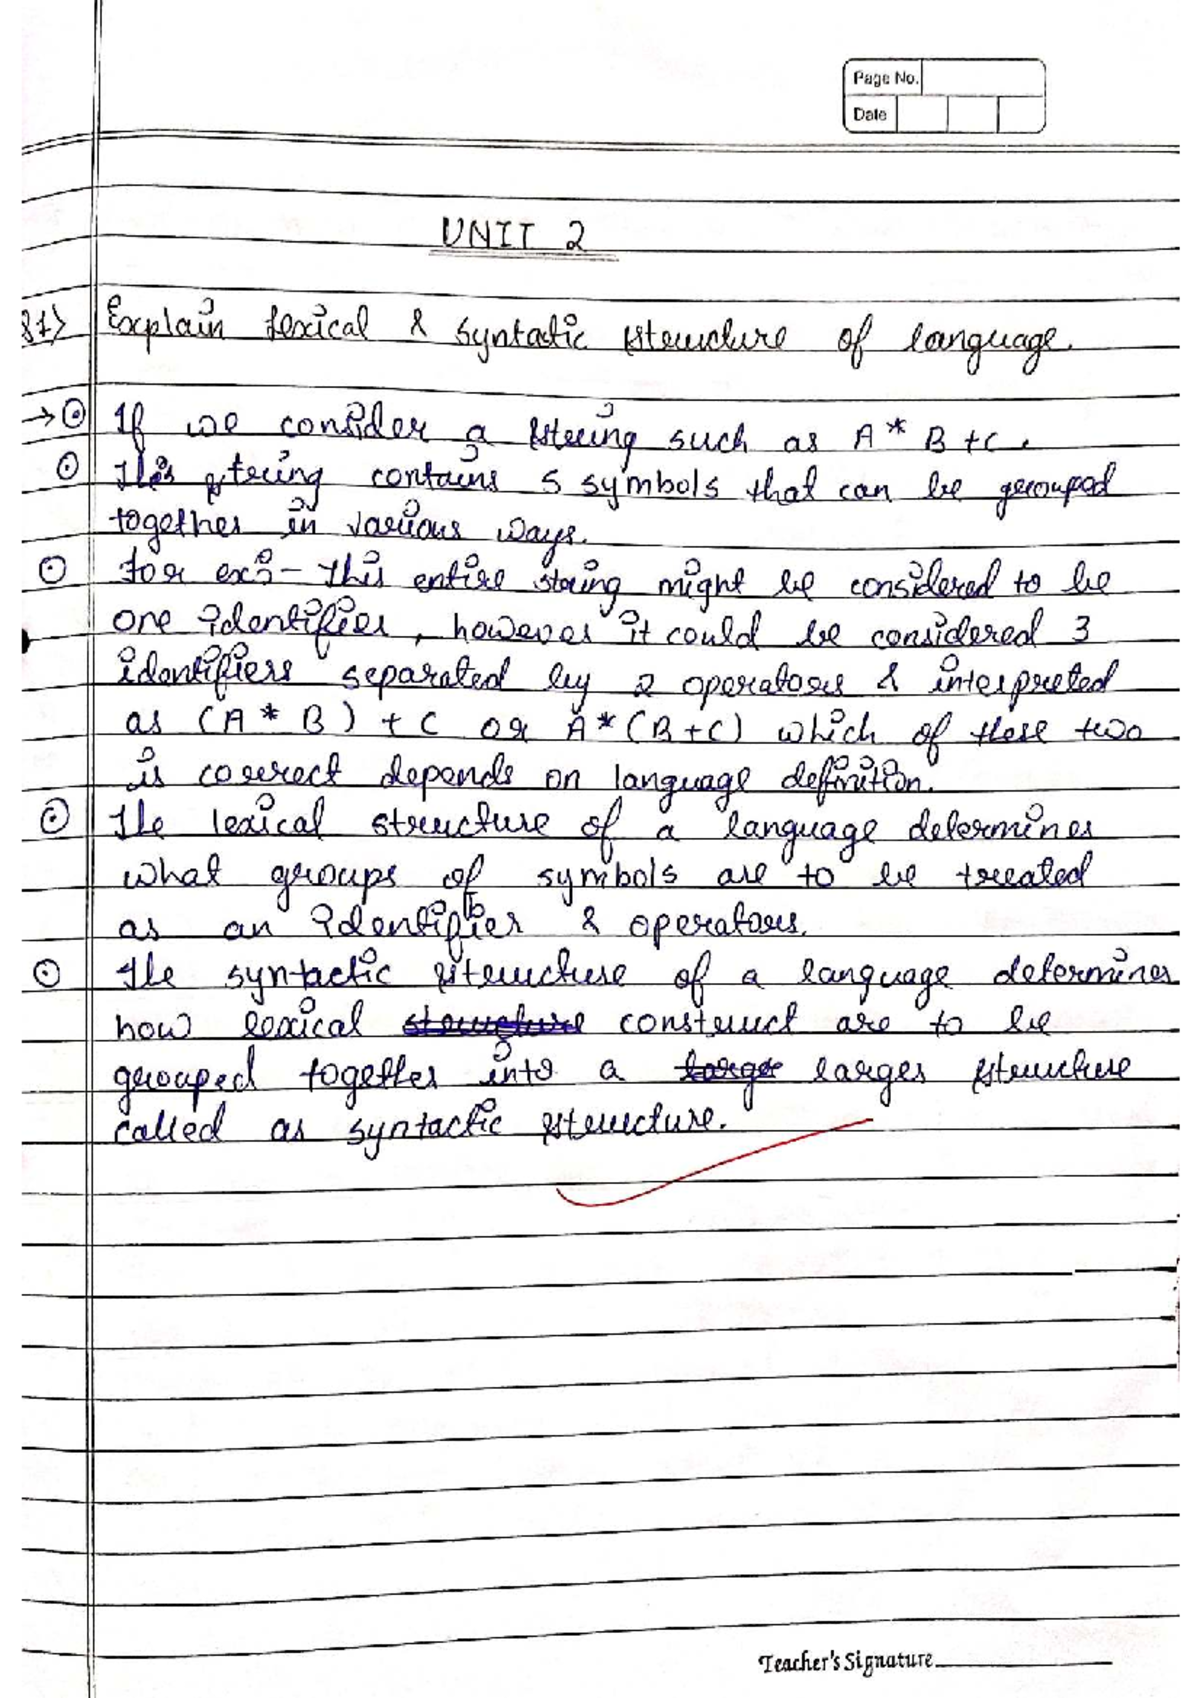 Page No.
Date
UNIT 2
Q1> Explain lexical & syntactic structure of language.
→ If we consider a string such as A * B + C.
This string contains 5 symbols that can be grouped
together in various ways.
For ex:- This entire string might be considered to be
one identifier, however it could be considered 3
identifiers separated by 2 operators & interpreted
as (A * B) + C or A * (B+C) which of these two
is correct depends on language definition.
The lexical structure of a language determines
what groups of symbols are to be treated
as an identifier & operators.
The syntactic structure of a language determines
how lexical structure construct are to be
grouped together into a larger larger structure
called as syntactic structure.
Teacher's Signature